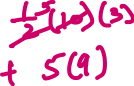 1/2 5 (10) (3)
+ 5(9)